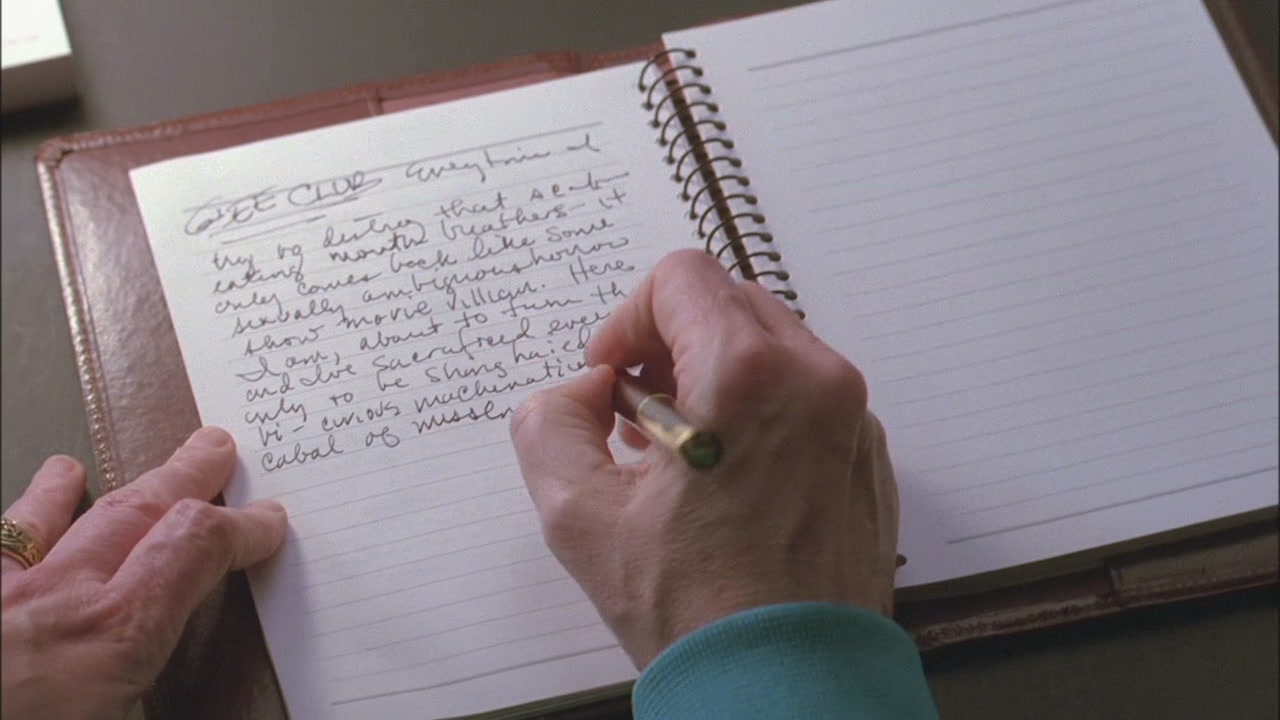 GLEE CLUB Everytime I
try to destroy that scab
eating mouth breathers - it
only comes back like some
sexually ambiguous horror
show movie villian. Here
I am, about to turn th
and Ive sacraficed ever
only to be shanghaied
bi-curious machinatio
cabal of